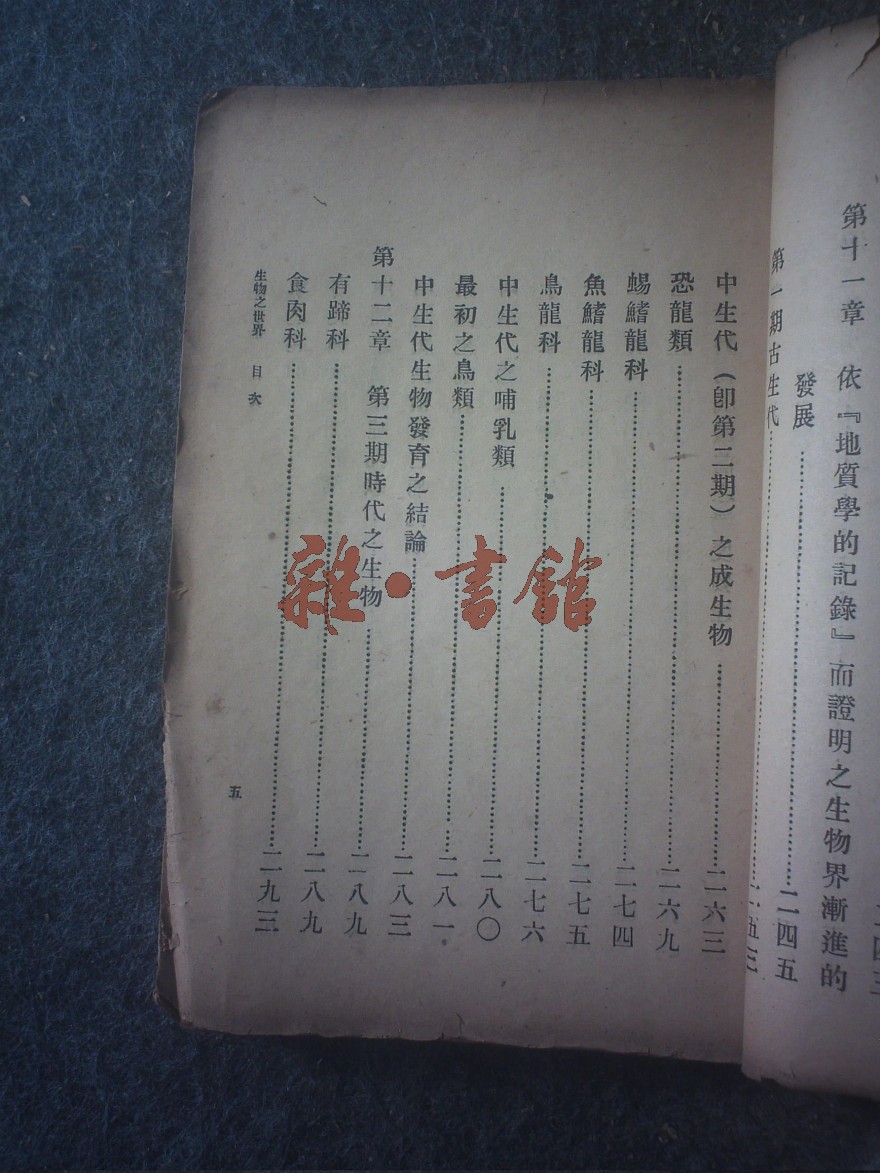 第十一章 依『地質學的記錄』而證明之生物界漸進的
發展……二四五
第一期古生代……二五三
中生代(卽第二期)之成生物……二六三
恐龍類……二六九
蜴鰭龍科……二七四
魚鰭龍科……二七五
鳥龍科……二七六
中生代之哺乳類……二八〇
最初之鳥類……二八一
中生代生物發育之結論……二八三
第十二章 第三期時代之生物……二八九
有蹄科……二八九
食肉科……二九三
生物之世界 目次
五
雜·書館